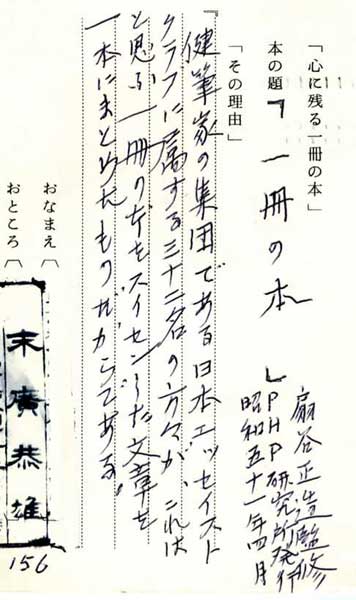 「心に残る一冊の本」
本の題「一冊の本」
扇谷正造監修
PHP研究所発行
昭和五十一年四月
「その理由」
『健筆家の集団である日本エッセイスト
クラブに属する三十二名の方々が、これは
と思ふ一冊の本をスイセンした文章を
一本にまとめたものだからである。
おなまえ
おところ
末廣恭雄
156